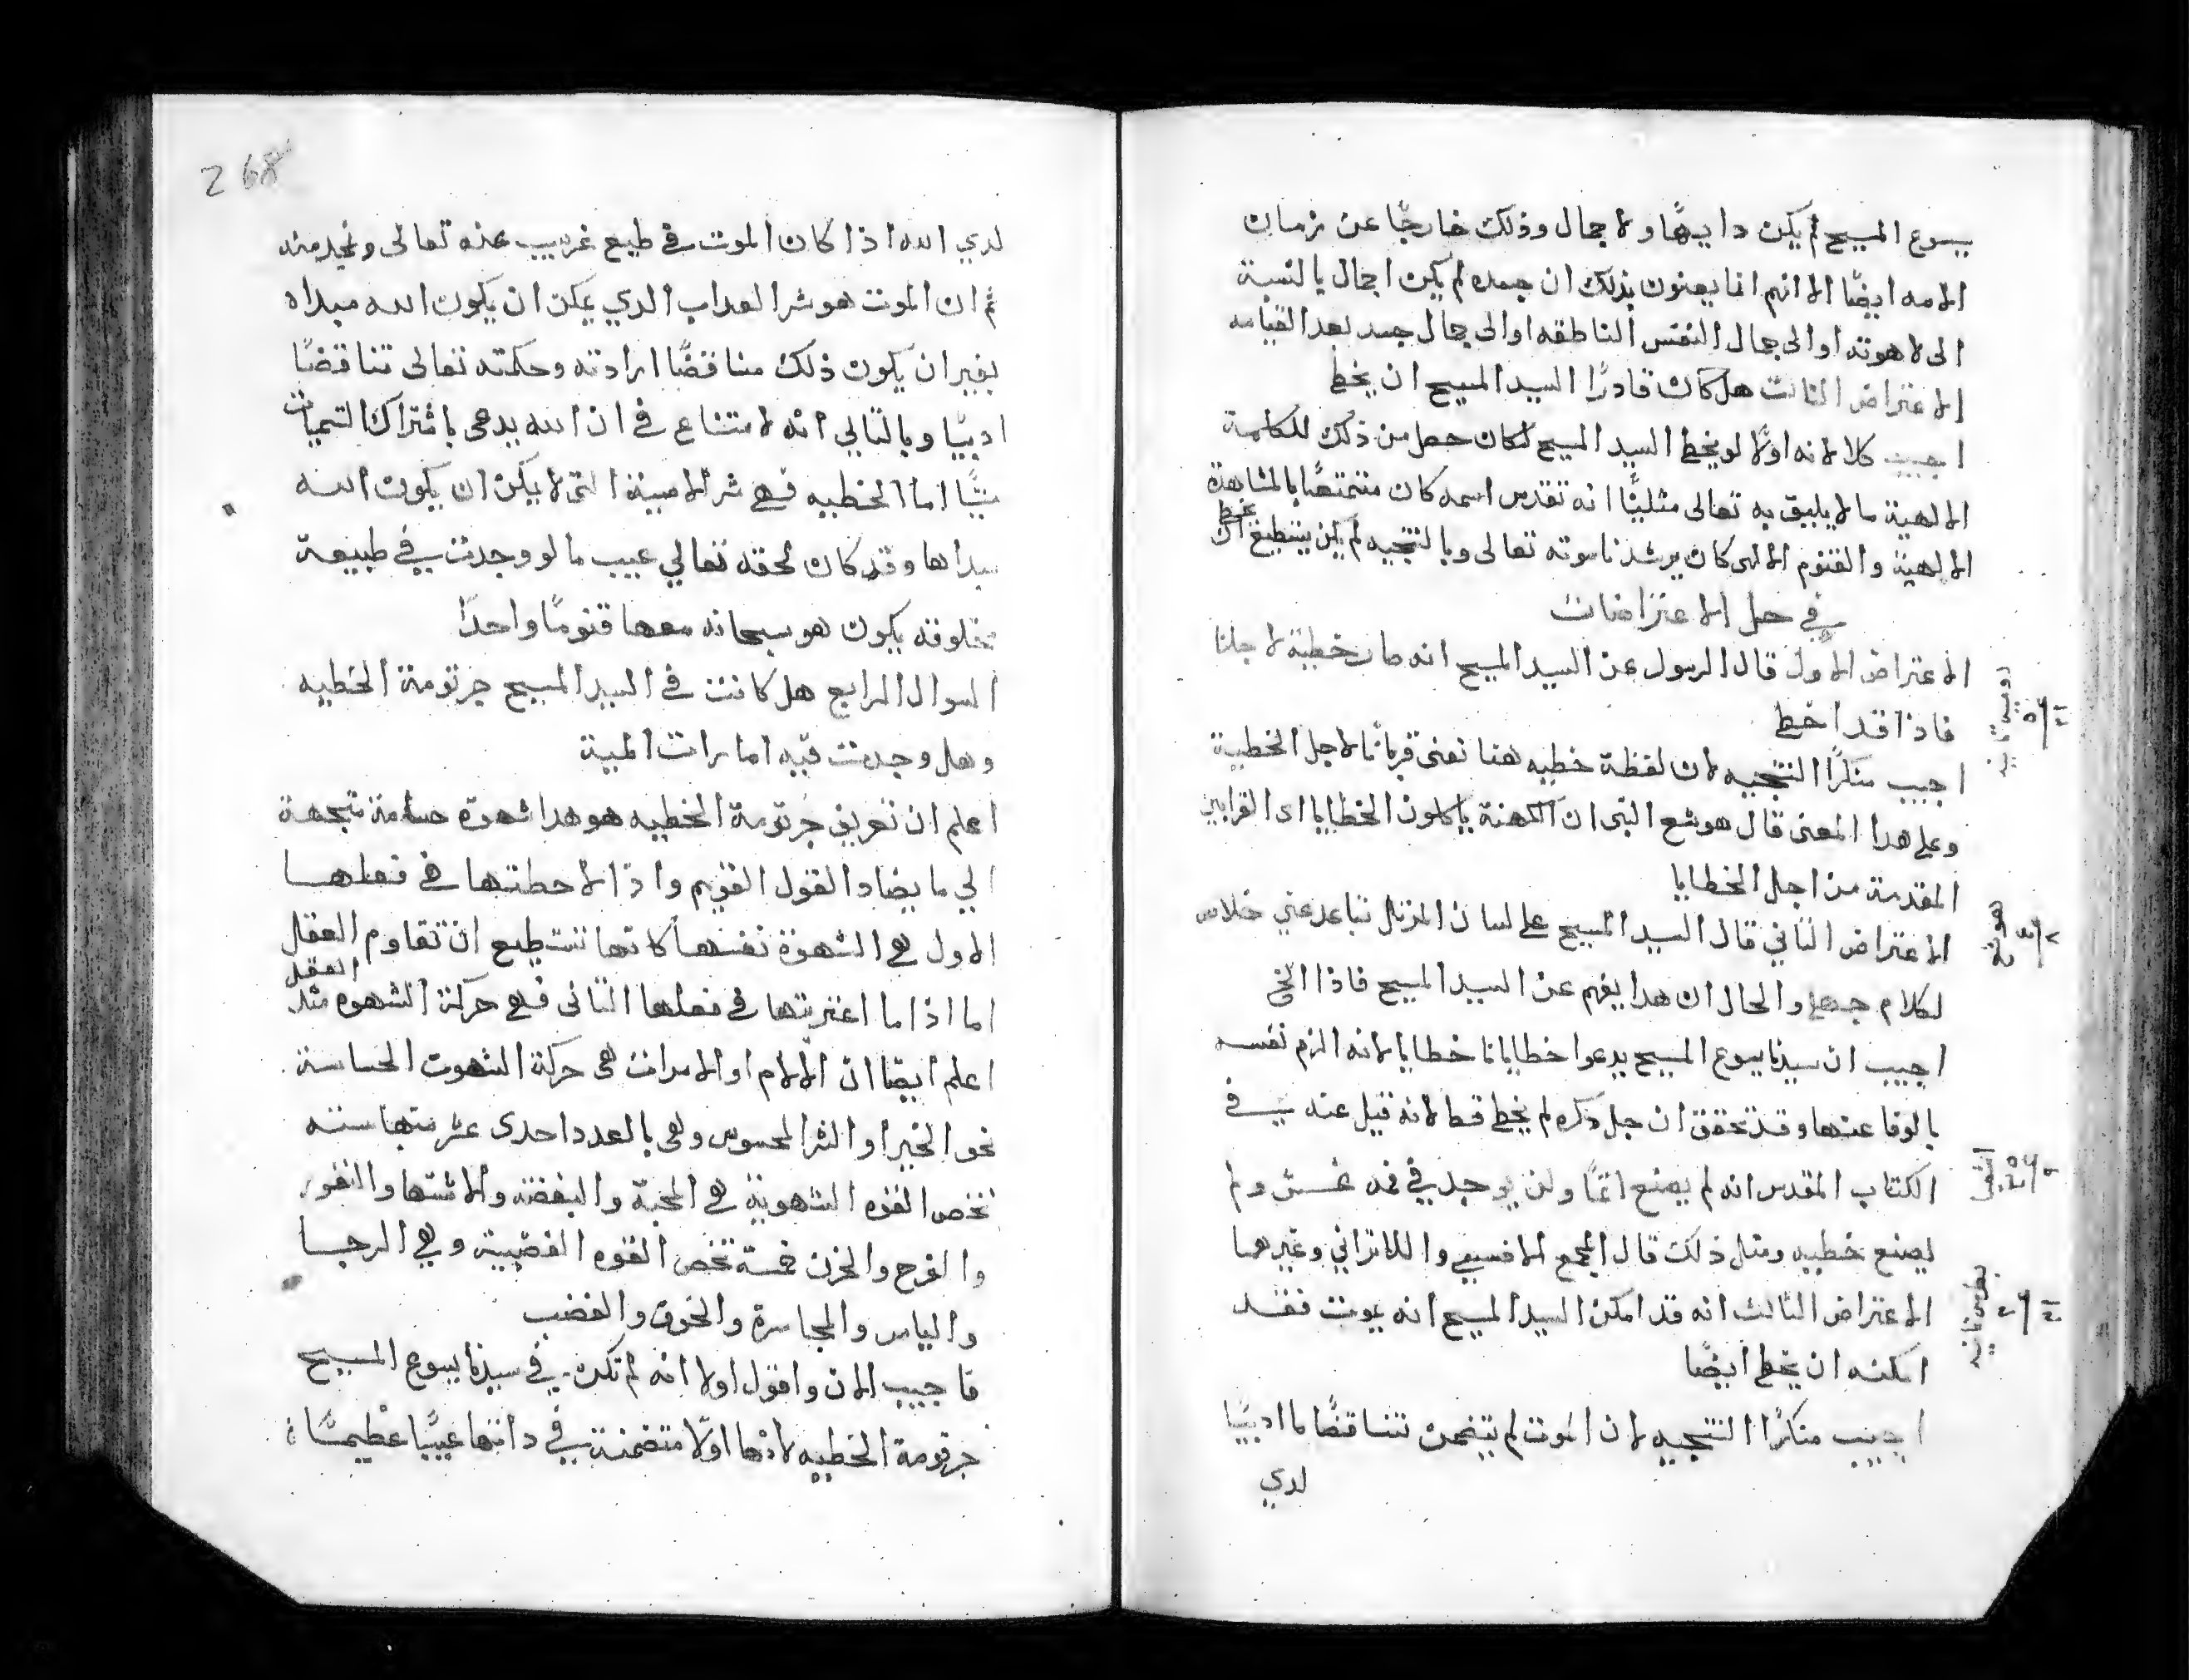 يسوع المسيح لم يكن دا بهًا ولا جمال وذلك خارجًا عن زمان
الامه ايضًا الا انهم انما يعنون بذلك ان جسده لم يكن اجمال بالنسبة
الى لاهوته او الى جمال النفس الناطقه او الى جمال جسد بعد القيامه
الاعتراض الثالث هل كان قادرًا السيد المسيح ان يخطي
اجيب كلا لانه اولًا لو يخطي السيد المسيح لكان حصل من ذلك للكلمة
الالهية ما لا يليق به تعالى مثلثًا انه تقدس اسمه كان متمتعًا بالمشاهدة
الالهية والقنوم الالهى كان يرشد ناسوته تعالى وبالنتيجيه لم يكن يستطيع ان يخطي
في حل الاعتراضات
الاعتراض الاول قال الرسول عن السيد المسيح انه صار خطية لاجلنا
فاذا قد اخطي
اجيب منكرًا النتيجيه لان لفظة خطيه هنا تعنى قربانًا لاجل الخطية
وعلى هدا المعنى قال هوشع النبى ان الكهنة ياكلون الخطايا اى القرابين
المقدمة من اجل الخطايا
الاعتراض الثاني قال السيد المسيح على لسان المرتل تباعد عني خلاص
لكلام جهلي والحال ان هدا يفهم عن السيد المسيح فاذا الخ
اجيب ان سيدنا يسوع المسيح يدعوا خطايانا خطايا لانه الزم نفسه
بالوفا عنها وقد تحقق ان جل ذكره لم يخطي قط لانه قيل عنه في
الكتاب المقدس انه لم يصنع اثمًا ولن يوجد في فمه غش ولم
يصنع خطيه ومثل ذلك قال المجمع الافسسي واللاتراني وغيرها
الاعتراض الثالث انه قد امكن السيد المسيح انه يموت فقد
امكنه ان يخطي ايضًا
اجيب منكرًا النتيجيه لان الموت لم يتضمن تناقضًا ما ادبيًا
لدي
هوشع
268
لدي الله اذا كان الموت في طبع غريب عنه تعالى ونجد منه
ثم ان الموت هو شر العداب الدي يمكن ان يكون الله مبداه
بغير ان يكون ذلك مناقضًا ارادته وحكمته تعالى تناقضًا
ادبيًا وبالتالي انه لا متناع في ان الله يدعى باشتراك التسميات
ميتًا اما الخطيه فهي شر الاميتة التى لا يمكن ان يكون الله
مبداها وقد كان لحقه تعالي عيب ما لو وجدت في طبيعة
مخلوقه يكون هو سبحانه معها قنومًا واحدًا
السوال الرابع هل كانت في السيد المسيح جرثومة الخطيه
وهل وجدت فيه امارات المية
اعلم ان تعريف جرثومة الخطيه هو هدا شهوة حسامة متجهة
الي ما يضاد القول القويم واذا لاحظتها في فعلها
الاول هي الشهوة نفسها كانها تستطيع ان تقاوم العقل
اما اذا ما اعتبرتها في فعلها الثانى فهي حركة الشهوه ضد العقل
اعلم ايضًا ان الالام او الامرات هى حركة الشهوت الحساسة
نحو الخير او الشر المحسوس وهى بالعدد احدى عشر منها سته
تخص القوه الشهوية هي المحبة والبغضة والاشتها والنفور
والفرح والحزن خمسة تخص القوه الغضبية وهي الرجا
والياس والمجاسرة والخوف والغضب
فاجيب الان واقول اولا انه لم تكن في سيدنا يسوع المسيح
جرثومة الخطيه لانها اولًا متضمنة في داتها عيبًا عظيمًا